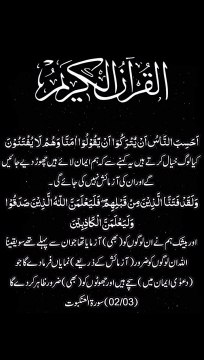 القرآن الكريم
اَحَسِبَ النَّاسُ اَنْ يُّتْرَكُوْٓا اَنْ يَّقُوْلُوْٓا اٰمَنَّا وَهُمْ لَا يُفْتَنُوْنَ
کیا لوگ خیال کرتے ہیں یہ کہنے سے کہ ہم ایمان لائے ہیں چھوڑ دیے جائیں
گے اور ان کی آزمائش نہیں کی جائے گی۔
وَلَقَدْ فَتَنَّا الَّذِيْنَ مِنْ قَبْلِهِمْ فَلَيَعْلَمَنَّ اللّٰهُ الَّذِيْنَ صَدَقُوْا
وَلَيَعْلَمَنَّ الْكَاذِبِيْنَ
اور بیشک ہم نے ان لوگوں کو (بھی) آزمایا تھا جو ان سے پہلے تھے سو یقیناً
اللہ ان لوگوں کو ضرور (آزمائش کے ذریعے) نمایاں فرما دے گا جو
(دعوٰی ایمان میں) سچے ہیں اور جھوٹوں کو (بھی) ضرور ظاہر کر دے گا
(02/03) سورة العنكبوت